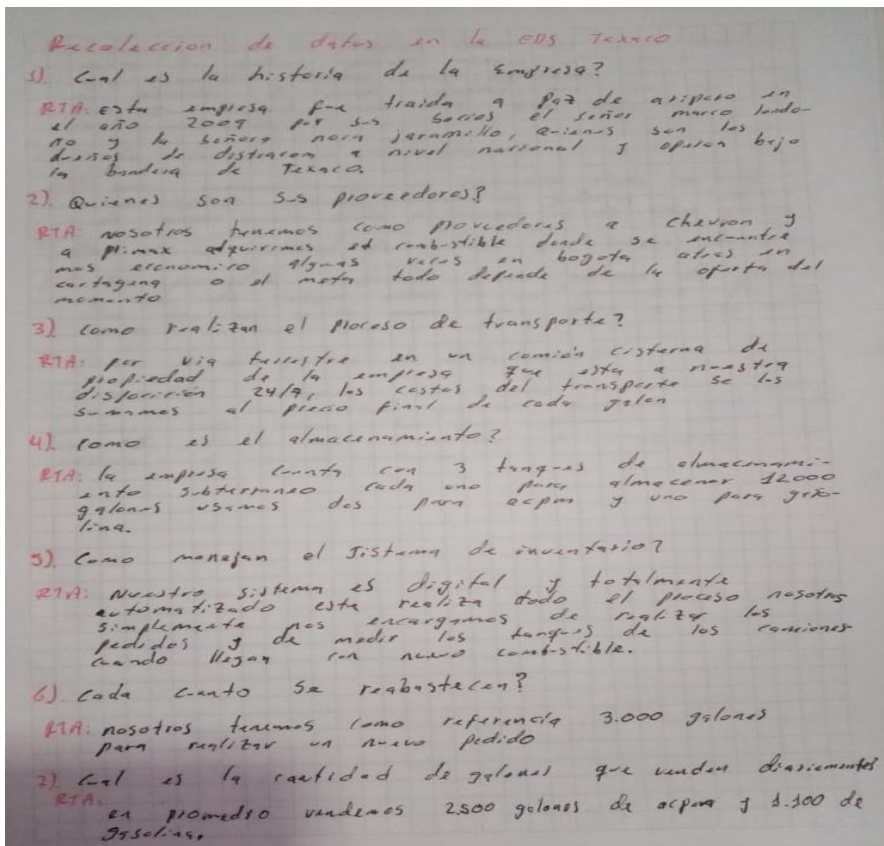 Recoleccion de datos en la EDS Texaco
1). Cual es la historia de la Empresa?
RTA: Esta empresa fue traida a Paz de ariporo en
el año 2009 por sus socios el señor marco londo-
no y la señora nora jaramillo, quienes son los
dueños de distracom a nivel nacional y operan bajo
la bandera de Texaco.
2). Quienes son sus proveedores?
RTA: nosotros tenemos como proveedores a chevron y
a primax adquirimos el combustible donde se encuentre
mas economico algunas veces en bogota otras en
cartagena o el meta todo depende de la oferta del
momento
3) como realizan el proceso de transporte?
RTA: por via terrestre en un camión cisterna de
propiedad de la empresa que esta a nuestra
disposición 24/7, los costos del transporte se los
sumamos al precio final de cada galon
4). como es el almacenamiento?
RTA: la empresa cuenta con 3 tanques de almacenami-
ento subterraneo cada uno para almacenar 12000
galones usamos dos para acpm y uno para gaso-
lina.
5). Como manejan el sistema de inventario?
RTA: Nuestro sistema es digital y totalmente
automatizado este realiza todo el proceso nosotros
simplemente nos encargamos de realizar los
pedidos y de medir los tanques de los camiones
cuando llegan con nuevo combustible.
6). Cada cuanto se reabastecen?
RTA: nosotros tenemos como referencia 3.000 galones
para realizar un nuevo pedido
7). Cual es la cantidad de galones que venden diariamentes
RTA:
en promedio vendemos 2500 galones de acpm y 1.100 de
gasolina.